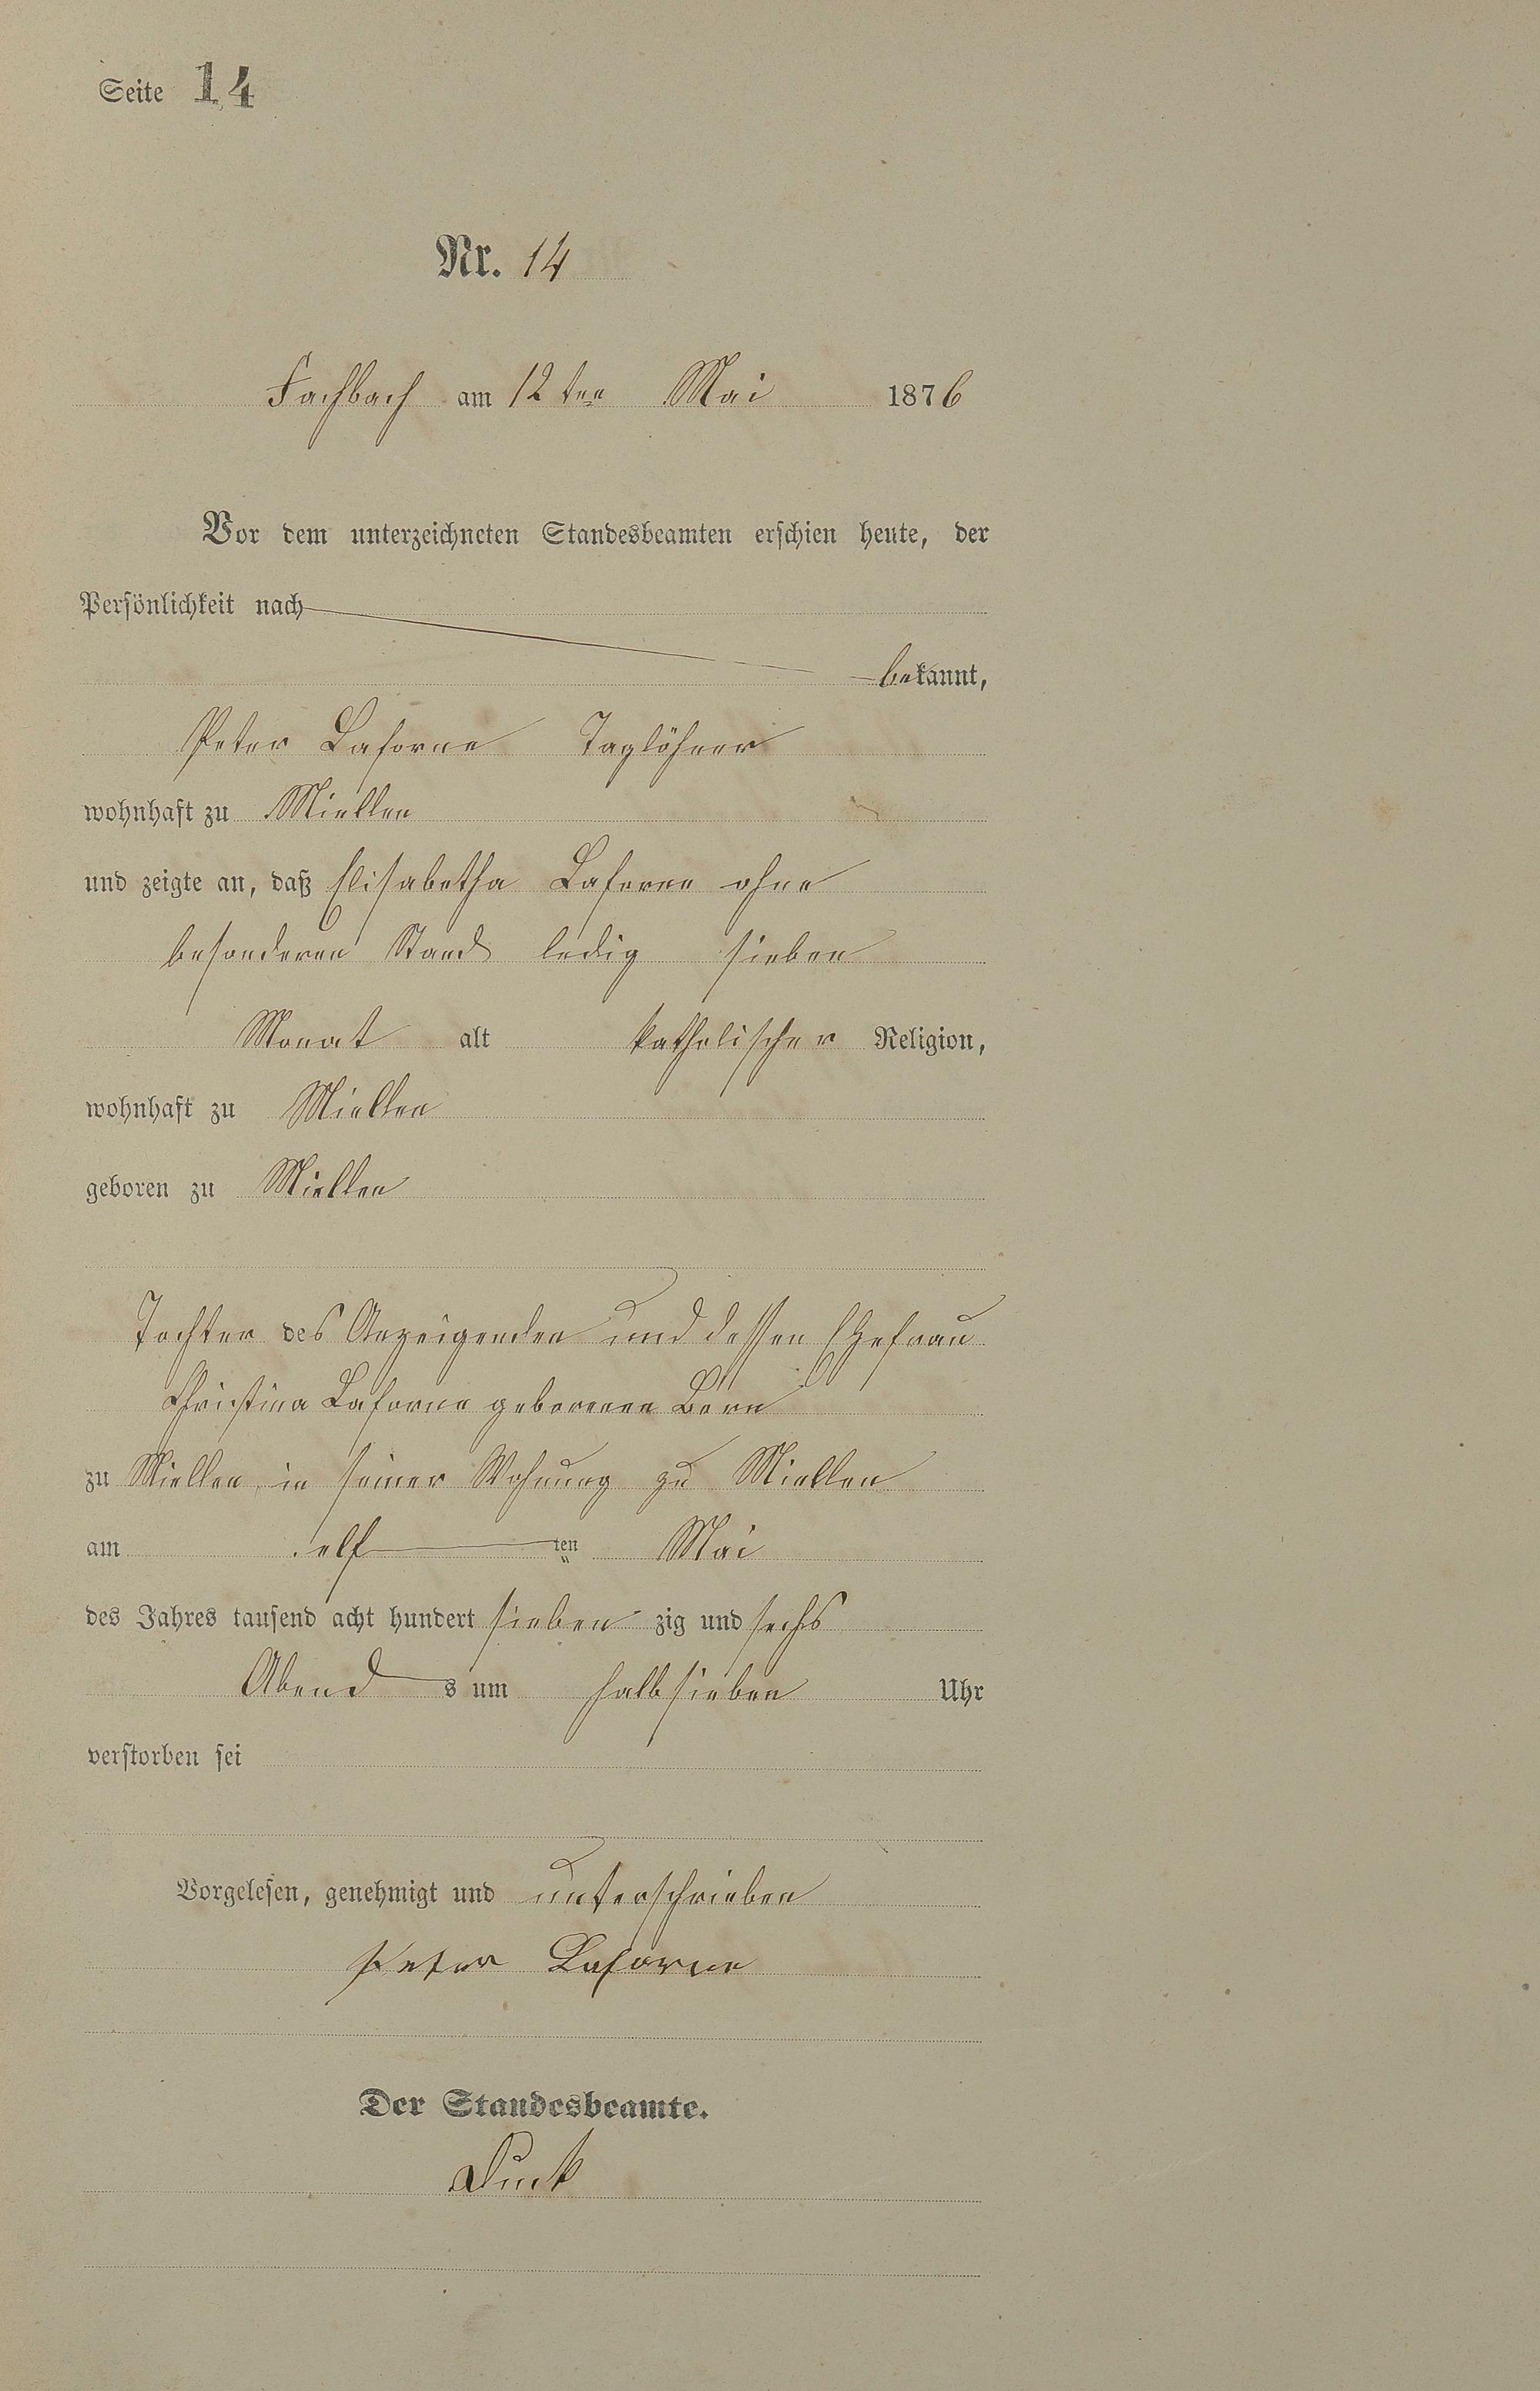 Seite 14
Nr. 14
Fachbach am 12ten Mai 1876
Vor dem unterzeichneten Standesbeamten erschien heute, der
Persönlichkeit nach
bekannt,
Peter Laforne Taglöhner
wohnhaft zu Miellen
und zeigte an, daß Elisabetha Laforne ohne
besonderen Stand ledig sieben
Monat alt katholischer Religion,
wohnhaft zu Miellen
geboren zu Miellen
Tochter des Anzeigenden und dessen Ehefrau
Christina Laforne geborenen Born
zu Miellen in seiner Wohnung zu Miellen
am elf ten Mai
des Jahres tausend acht hundert sieben zig und sechs
Abend s um halb sieben Uhr
verstorben sei
Vorgelesen, genehmigt und unterschrieben
Peter Laforne
Der Standesbeamte.